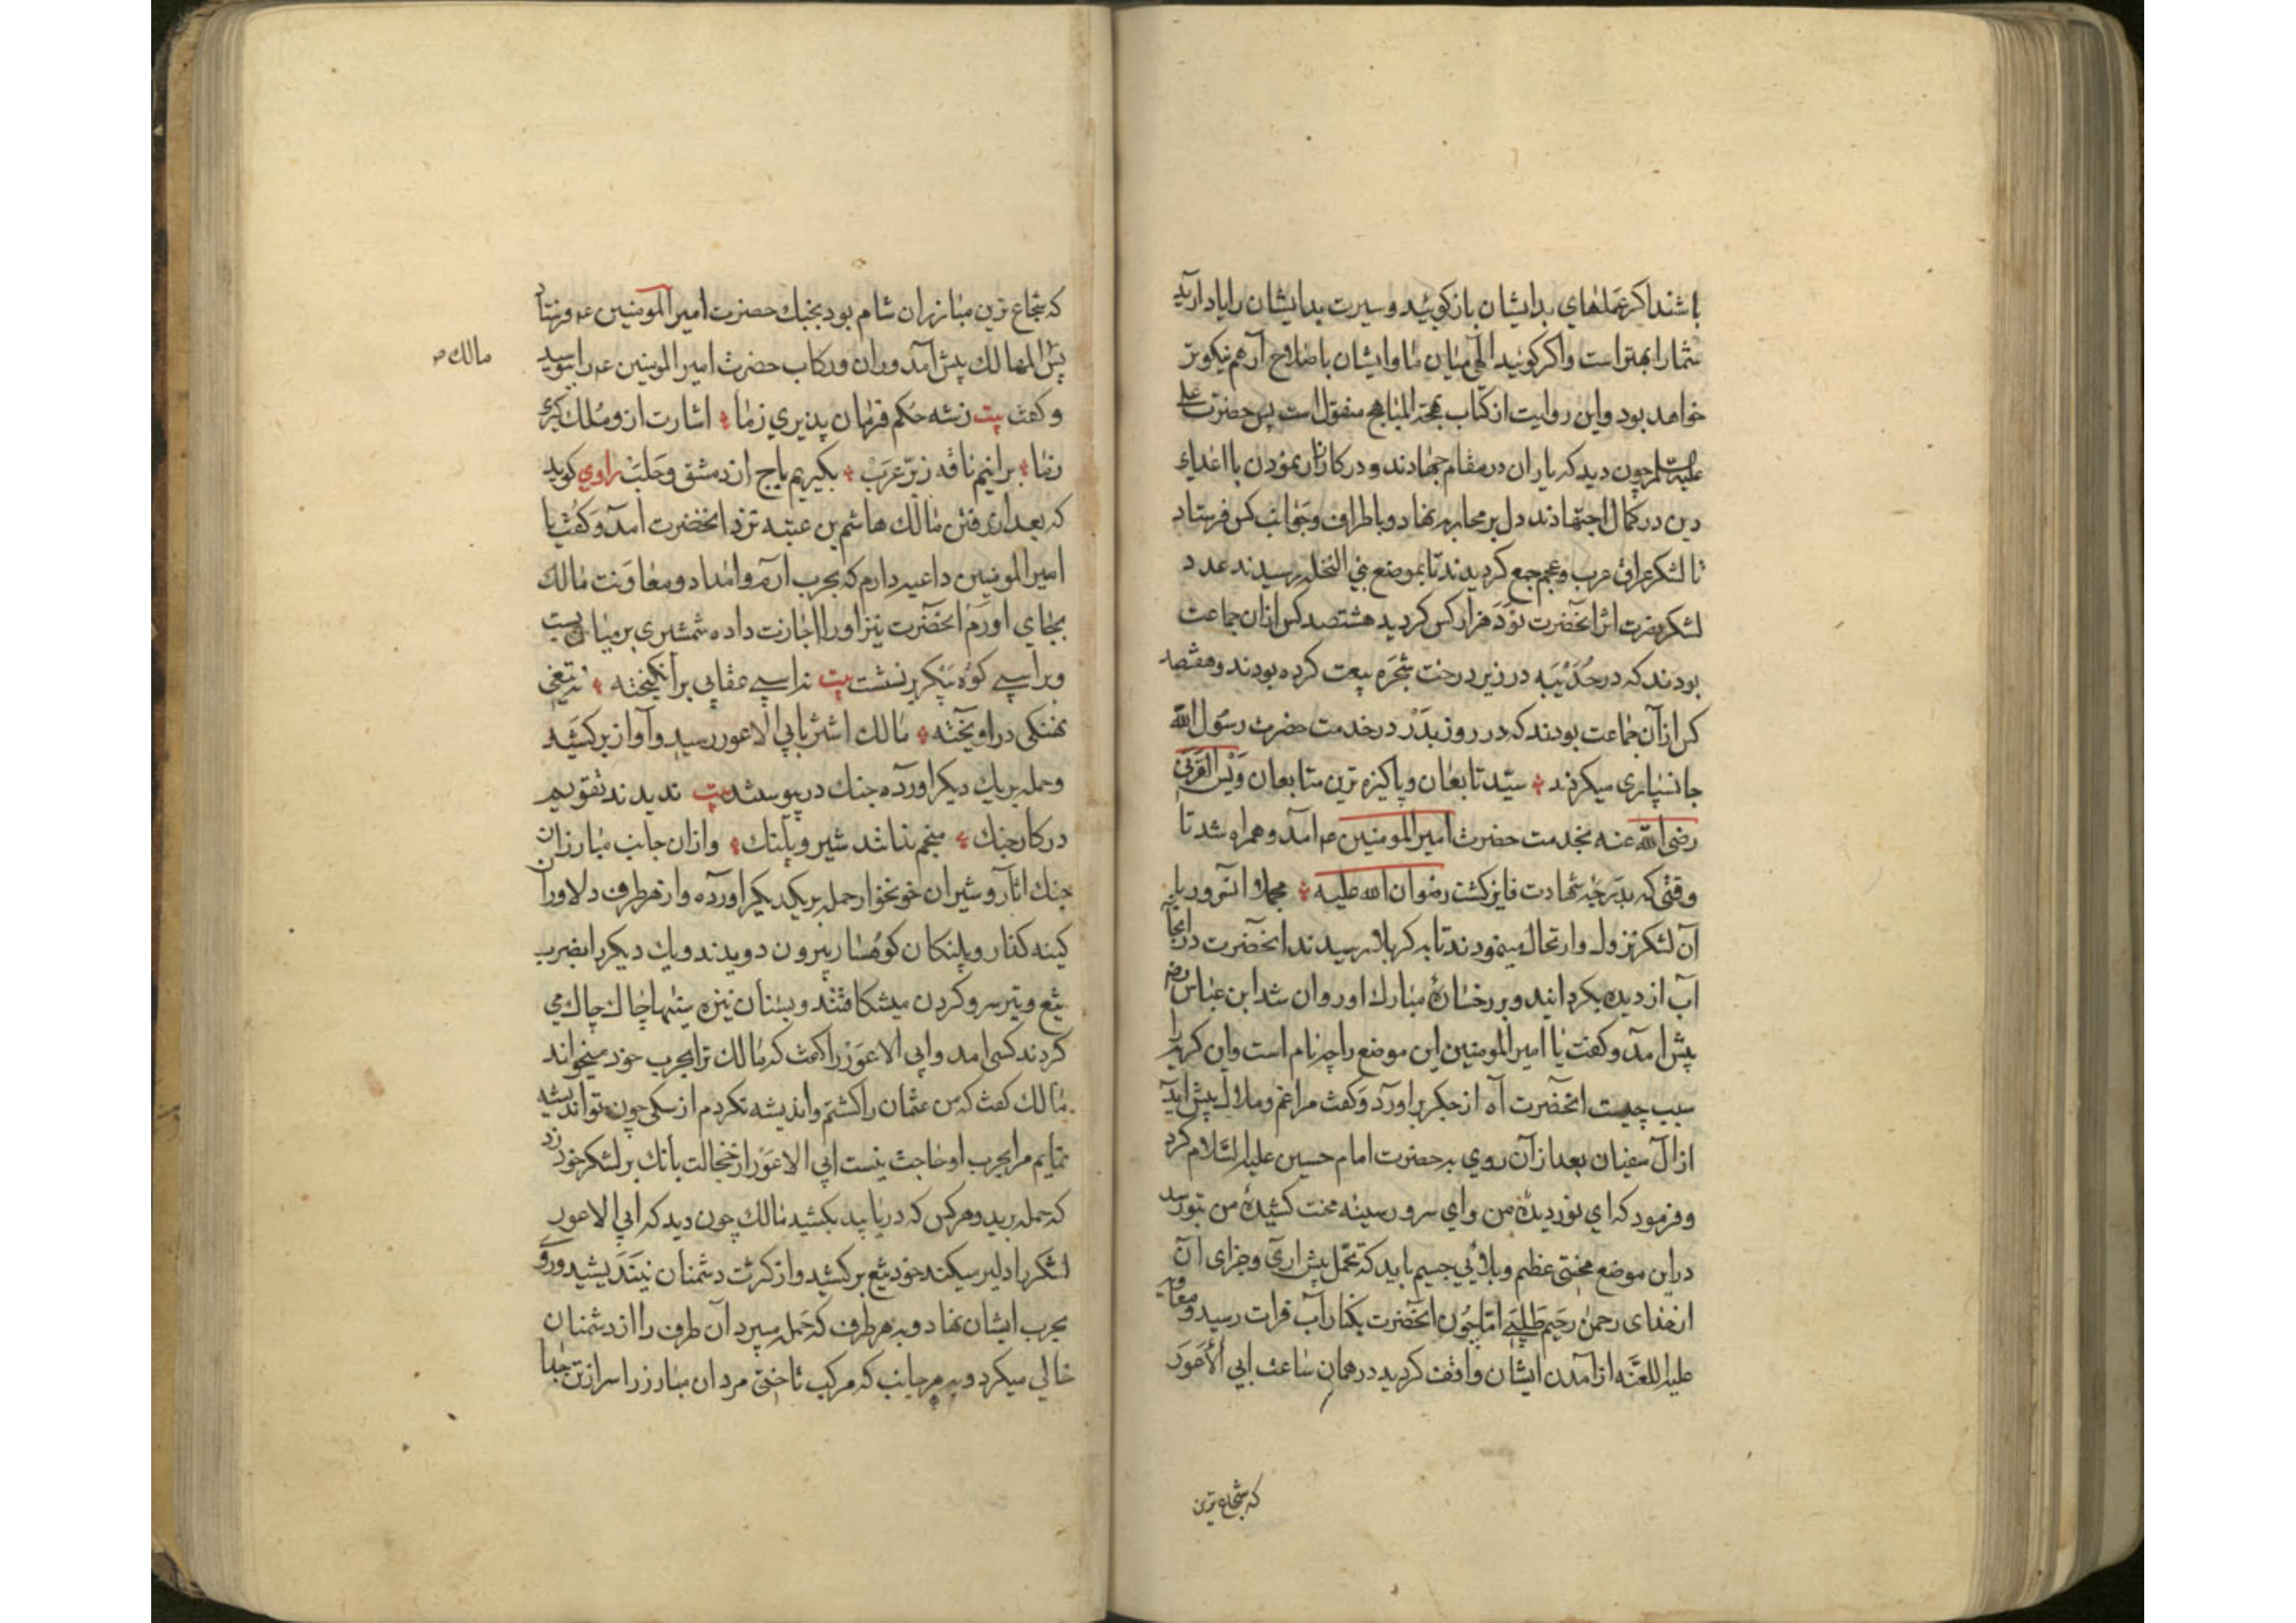 باشند اگر عملهای بد ایشان باز کویید و سیرت بد ایشان را یاد آرید
شما را بهتر است و اکر کویید الهی میان ما و ایشان باصلاح آر هم نیکوتر
خواهد بود و این روایت از کتاب بهجة المباهج منقول است پس حضرت علی
علیه السلم چون دید که یاران در مقام جهادند و در کارزار نمودن با اعداء
دین در کمال اجتهادند دل بر محاربه نهاد و باطراف و جوانب کس فرستاد
تا لشکر عراق عرب و عجم جمع کردیدند تا بموضع بنی النخله رسیدند عدد
لشکر نصرت اثر انحضرت نود هزار کس کردید هشتصد کس ازان جماعت
بودند که در حدیبیه در زیر درخت شجره بیعت کرده بودند و هفتصد
کس از آن جماعت بودند که در روز بدر در خدمت حضرت رسول الله
جانسپاری میکردند سید تابعان و پاکیزه ترین متابعان ویس القرنی
رضی الله عنه بخدمت حضرت امیر المومنین عم آمد و همراه شد تا
وقتی که بدرجه شهادت فایز کشت رضوان الله علیه مجملا انسرور با
آن لشکر نزول و ارتحال مینمودند تا به کربلا رسیدند انحضرت در انجا
آب از دیده بکردانید و بر رخساره مبارک او روان شد ابن عباس رض
پیش آمد و کفت یا امیر المومنین این موضع را چه نام است و این کریه را
سبب چیست انحضرت آه از جکر براورد و کفت مرا غم و ملال پیش آید
از آل سفیان بعد از آن روی به حضرت امام حسین علیه السلام کرد
و فرمود که ای نور دیده من و ای سرور سینه محنت کشیده من بتو رسد
در این موضع محنتی عظیم و بلائی جسیم باید که تحمل پیش آری و جزای آن
از خدای رحمن رحیم طلبی اما چون انحضرت بکنار آب فرات رسید و معاویه
علیه اللعنه از آمدن ایشان واقف کردید در همان ساعت ابی الاعور
که شجاع ترین
که شجاع ترین مبارزان شام بود بجنک حضرت امیر المومنین عم فرستاد
پس مالک پیش آمد و ران و رکاب حضرت امیر المومنین عم را بوسید
مالک ص
و کفت بیت زشه حکم فرمان پذیری زما اشارت ازو ملک کیری
زما برانیم ناقه زبر عرب بکیریم باج از دمشق و حلب راوی کوید
که بعد از رفتن مالک هاشم بن عتبه نزد انحضرت امد و کفت یا
امیر المومنین داعیه دارم که بحرب ارم و امداد و معاونت مالک
بجای اورم انحضرت نیز او را اجازت داده شمشیری بر میان بست
و بر اسپی کوه پیکر بر نشست بیت نه اسپی عقابی بر انکیخته نه تیغی
نهنکی در اویخته مالک اشتر بابی الاعور رسید و آواز برکشید
و حمله بر یک دیکر اورده جنک در پیوستند بیت ندیدند تقویم
در کار جنک منجم نداند شیر و پلنک و ازان جانب مبارزان
جنک اثار و شیران خونخوار حمله بر یکدیکر اورده و از هر طرف دلاوران
کینه کذار و پلنکان کوهسار بیرون دویدند و یک دیکر را بضرب
تیغ و تیر سر و کردن میشکافتند و بسنان نیزه سینها چاک چاک می
کردند کسی امد و ابی الاعور را کفت که مالک ترا بحرب خود میخواند
مالک کفت که من عثمان را کشتم و اندیشه نکردم از سکی چون تو اندیشه
نمایم مرا بحرب او حاجت نیست ابی الاعور از خجالت بانک بر لشکر خود زد
که حمله برید و هر کس که دریابید بکشید مالک چون دید که ابی الاعور
لشکر را دلیر میکند خود تیغ برکشید و از کثرت دشمنان نیندیشید و رو
بحرب ایشان نهاد و بهر طرف که حمله میبرد آن طرف را از دشمنان
خالی میکرد و بهر جانب که مرکب تاختی مردان مبارز را سر از تن جدا